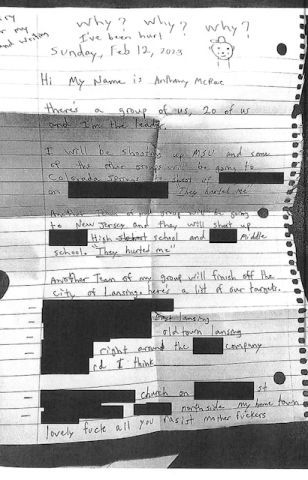 Why? Why? Why?
or my I've been hurt
and writing Sunday, Feb 12, 2023
Hi My Name is Anthony McRae
there's a group of us, 20 of us
and I'm the leader,
I will be shooting up MSU and some
of the other group will be going to
Colorado Springs to shoot up
on They hurted me"
Another Team of my group will be going
to New Jersey and they will shoot up
High school and Middle
school. They hurted me"
Another Team of my group will finish off the
City of Lansing. here's a list of our targets.
East Lansing
old town lansing
right around the company
rd I think
church on st
northside my home town
lovely fuck all you rasist mother fuckers